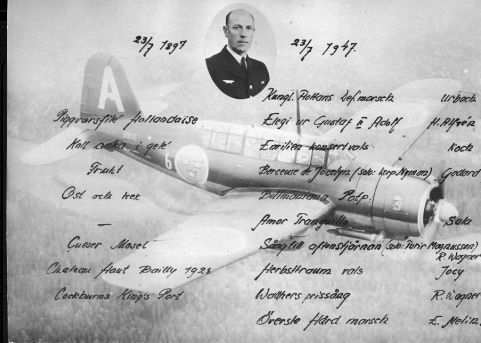 23/7 1897
23/7 1947.
Kungl. Flottans def. marsch Urbach
Piggvarsfilé Hollandaise
Elegi ur Gustaf II Adolf H. Alfvén
Kall anka i gelé
Emilien konsertvals Kock
Frukt
Berceuse de Jocelyn (solo: korp Nyman) Godard
Ost och kex
Potp.
Amor Tranquille Saka
Cuvér Mosel
Sång till aftonstjärnan (solo: Magnusson)
R. Wagner
Chateau Haut Bailly 1928
Herbsttraum vals Jocy
Cockburns King's Port
Walthers prissång R. Wagner
Överste Hård marsch E. Melin.
A
6